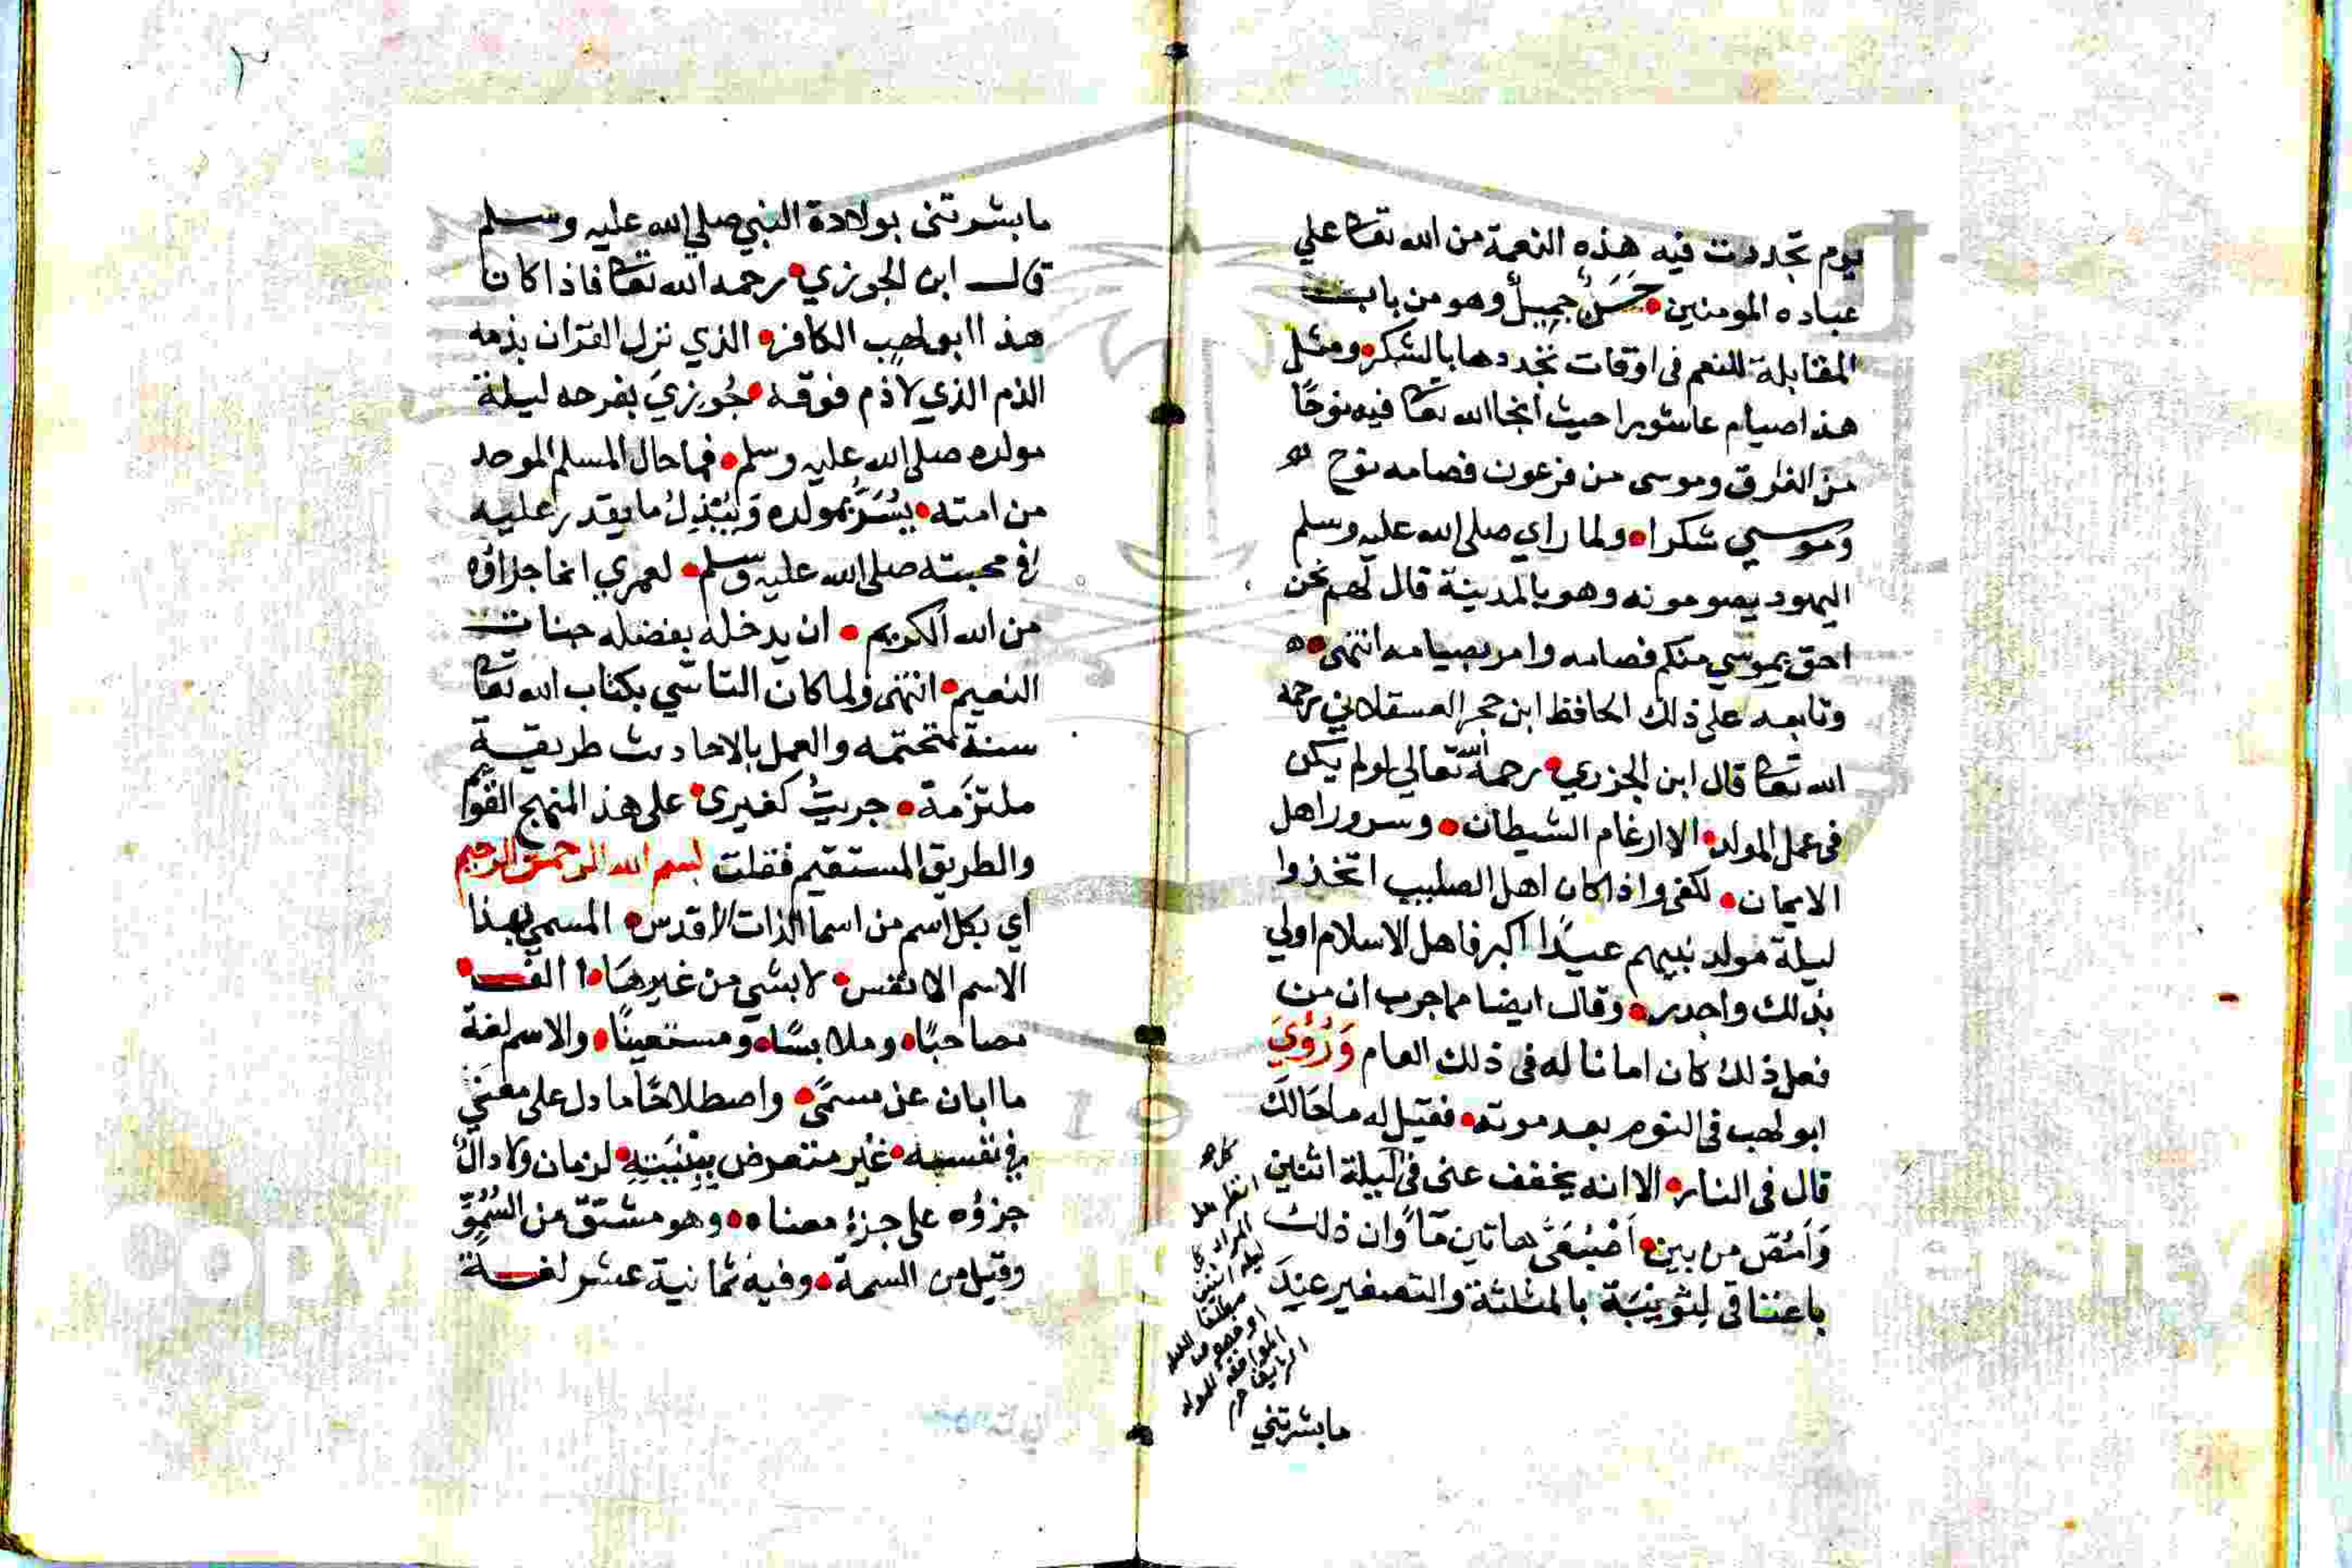 يوم تجددت فيه هذه النعمة من الله تعا علي
عباده المومنين • حَسَنٌ جميلٌ وهو من باب
المقابلة للنعم فى اوقات تجددها بالشكر • ومثل
هذا صيام عاشورا حيث أنجا الله تعا فيه نوحًا
من الغرق وموسى من فرعون فصامه نوح
وموسي شكرا • ولما راي صلى الله عليه وسلم
اليهود يصومونه وهو بالمدينة قال لهم نحن
احق بموسي منكم فصامه وامر بصيامه انتهى •ه
وتابعه على ذلك الحافظ ابن حجر العسقلاني رحمه
الله تعا قال ابن الجزري • رحمه الله تعالي لولم يكن
فى عمل المولد • الا ارغام الشيطان • وسرور اهل
الايمان • لكفى واذا كان اهل الصليب اتخذوا
ليلة مولد نبيهم عيدًا اكبر فاهل الاسلام اولي
بذلك واجدر • وقال ايضا مما جرب ان من
فعل ذلك كان امانا له فى ذلك العام وَرُؤِيَ
ابو لهب فى النوم بعد موته • فقيل له ما حَالكَ
قال فى النار • الا انه يخفف عنى فى ليلة اثنين
وَامُصّ من بين • اُصْبُعَىَّ هاتين مآءً وان ذلك
باعتاقى لِثُوَيْبَة بالمثلثة والتصغير عند
انظر هل
المراد
ليلة اثنين
مطلقا
او خصوص الليلة
الموافقة للمولد
ما بشرتني
٢
ما بشرتنى بولادة النبي صلي الله عليه وسلم
قال ابن الجوزي • رحمه الله تعا فاذا كان
هذا ابو لهب الكافر • الذي نزل القران بذمه
الذم الذي لا ذم فوقه • جُوزيَ بفرحه ليلة
مولده صلى الله عليه وسلم • فما حال المسلم الموحد
من امته • يُسَرّ بمولده وَيَبْذِلُ ما يقدر عليه
فى محبته صلى الله عليه وسلم • لعمري انما جزاؤه
من الله الكريم • ان يدخله بفضله جنات
النعيم • انتهى ولما كان التاسّي بكتاب الله تعا
سنة متحتمه والعمل بالاحاديث طريقة
ملتزَمة • جريتُ كغيرى • على هذا المنهج القويم
والطريق المستقيم فقلت بسم الله الرحمن الرحيم
أي بكل اسم من اسما الذات الاقدس • المسمي بهذا
الاسم الانفس • لا بشي من غيرهَا • االف •
مصاحبًا • وملابسًا • ومستعينًا • والاسم لغة
ما ابان عن مسمًى • واصطلاحًا ما دل على معنَي
فى نفسه • غير متعرض بِبِنْيَتِهِ • لزمان ولا دالٌ
جزؤه على جزءِ معناه • وهو مشتقّ من السُّمُوِّ
وقيل من السمة • وفيه ثمانية عشر لغة